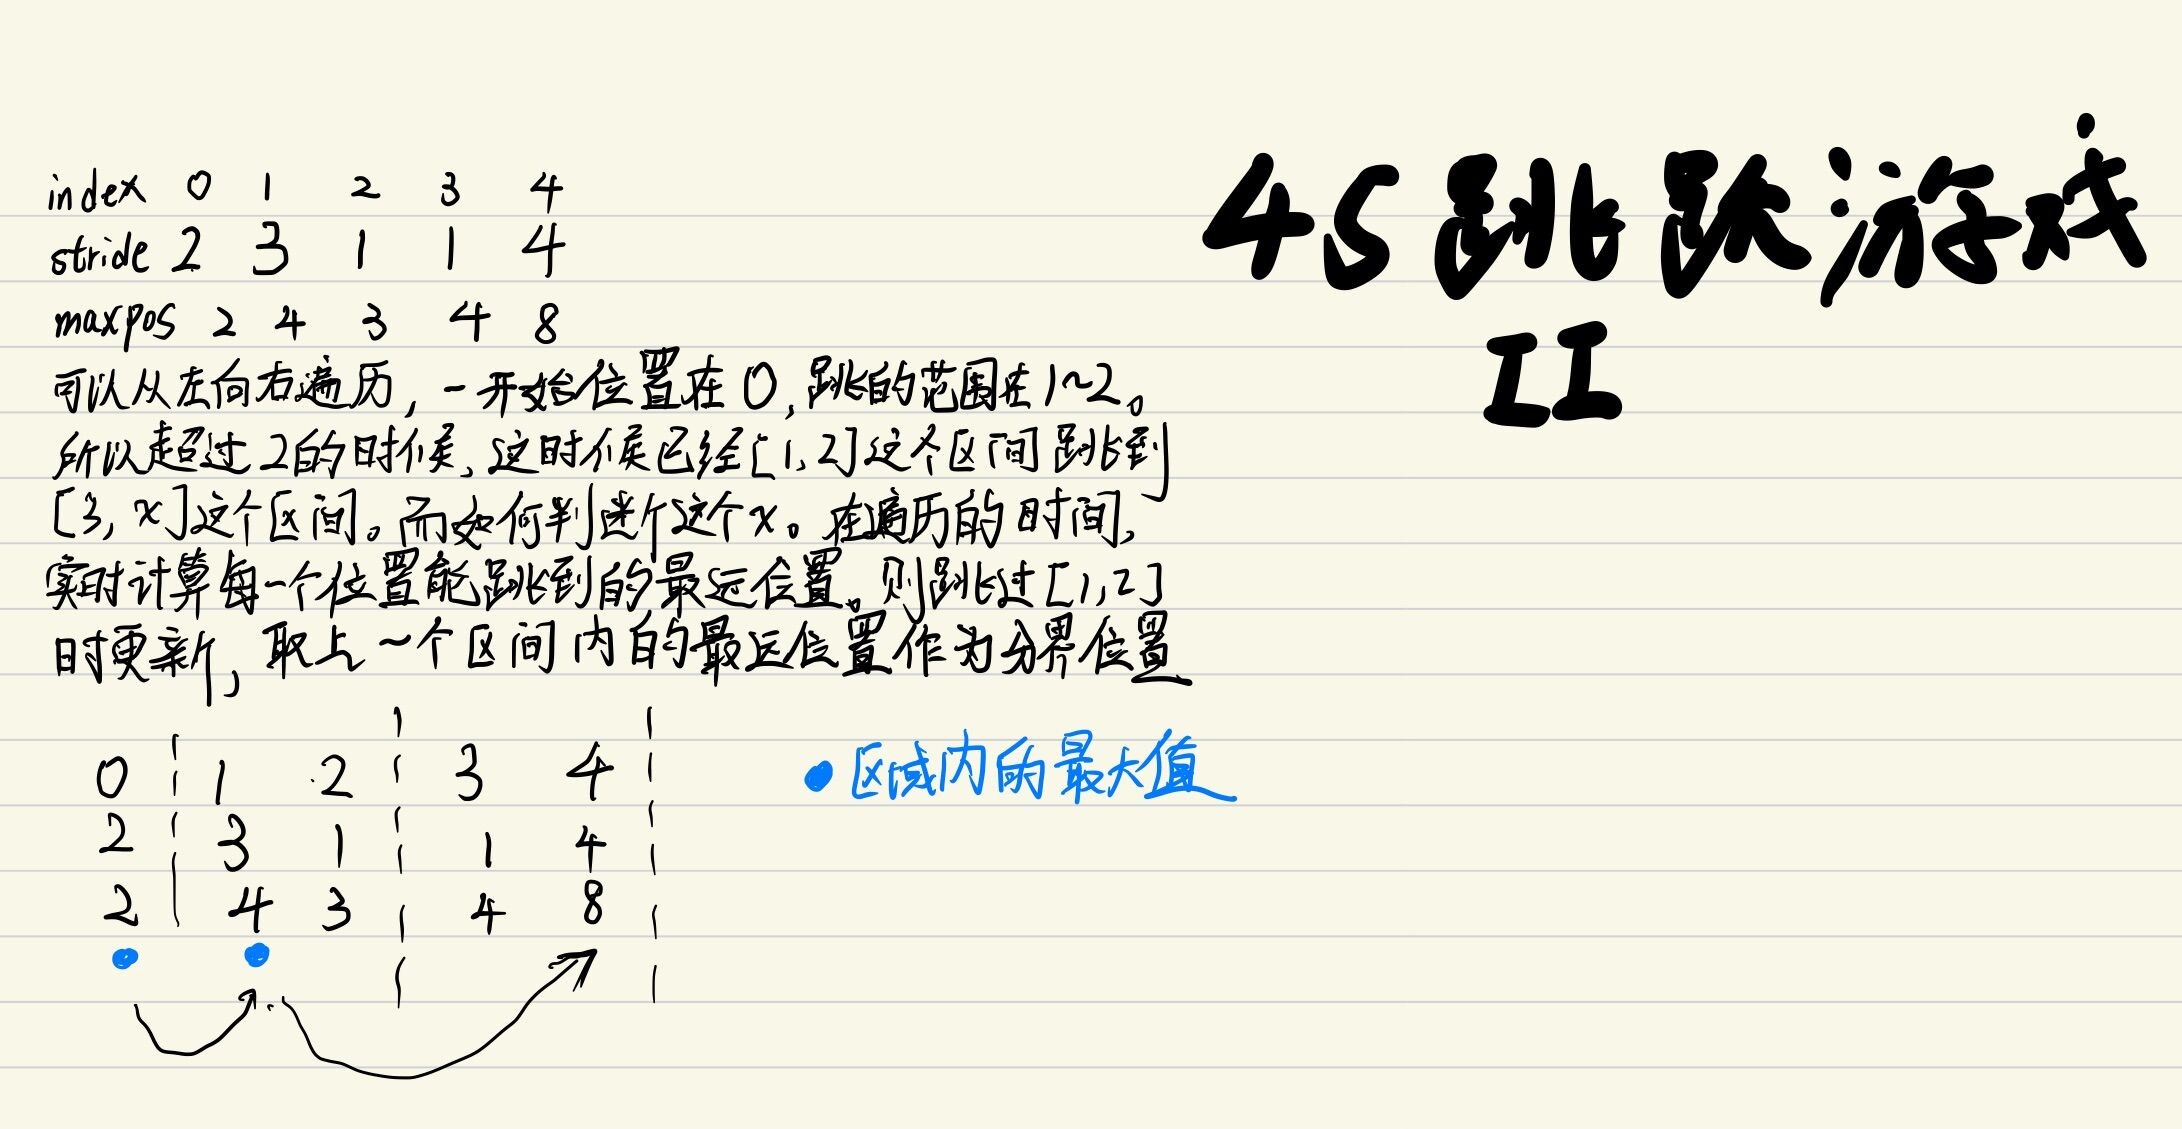 45跳跃游戏
II
index 0 1 2 3 4
stride 2 3 1 1 4
maxpos 2 4 3 4 8
可以从左向右遍历,一开始位置在0,跳的范围在1~2。
所以超过2的时候,这时候已经[1,2]这个区间跳到
[3,x]这个区间。而如何判断这个x。在遍历的时间,
实时计算每一个位置能跳到的最远位置。则跳过[1,2]
时更新,取上一个区间内的最远位置作为分界位置
0 1 2 3 4
2 3 1 1 4
2 4 3 4 8
区域内的最大值